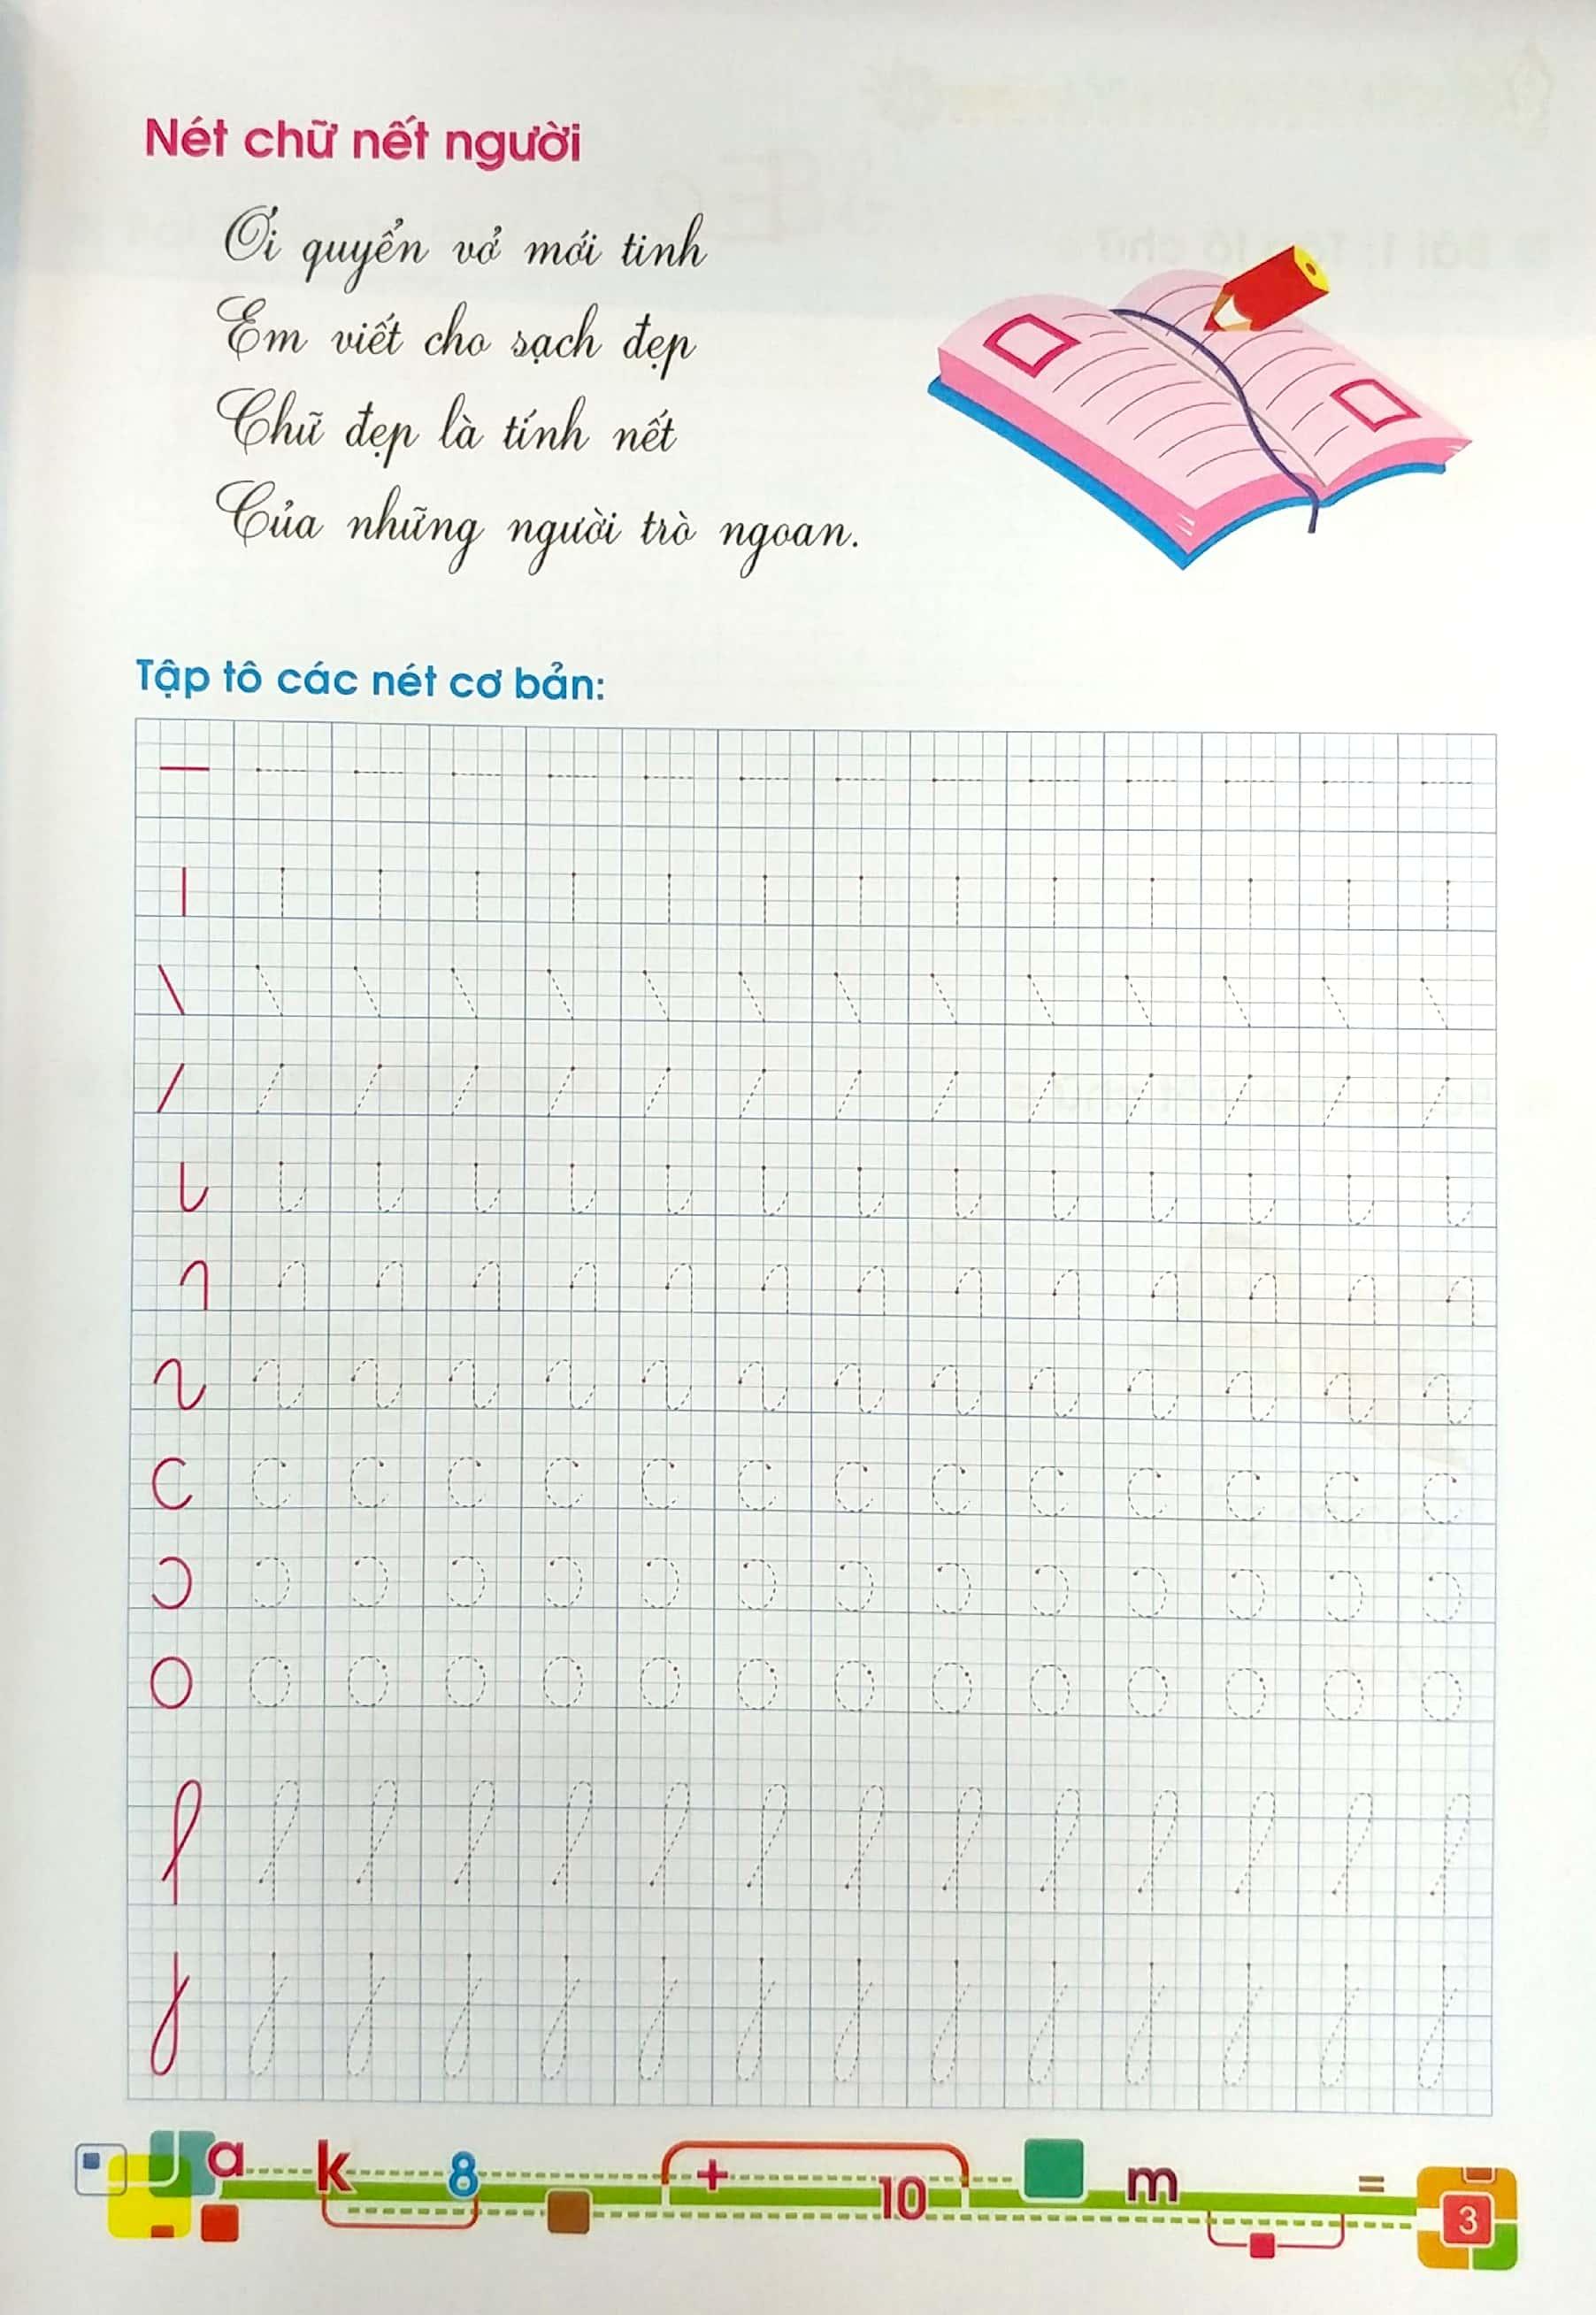 Nét chữ nết người
Ơi quyển vở mới tinh
Em viết cho sạch đẹp
Chữ đẹp là tính nết
Của những người trò ngoan.
Tập tô các nét cơ bản:
a k 8 + 10 m = 3